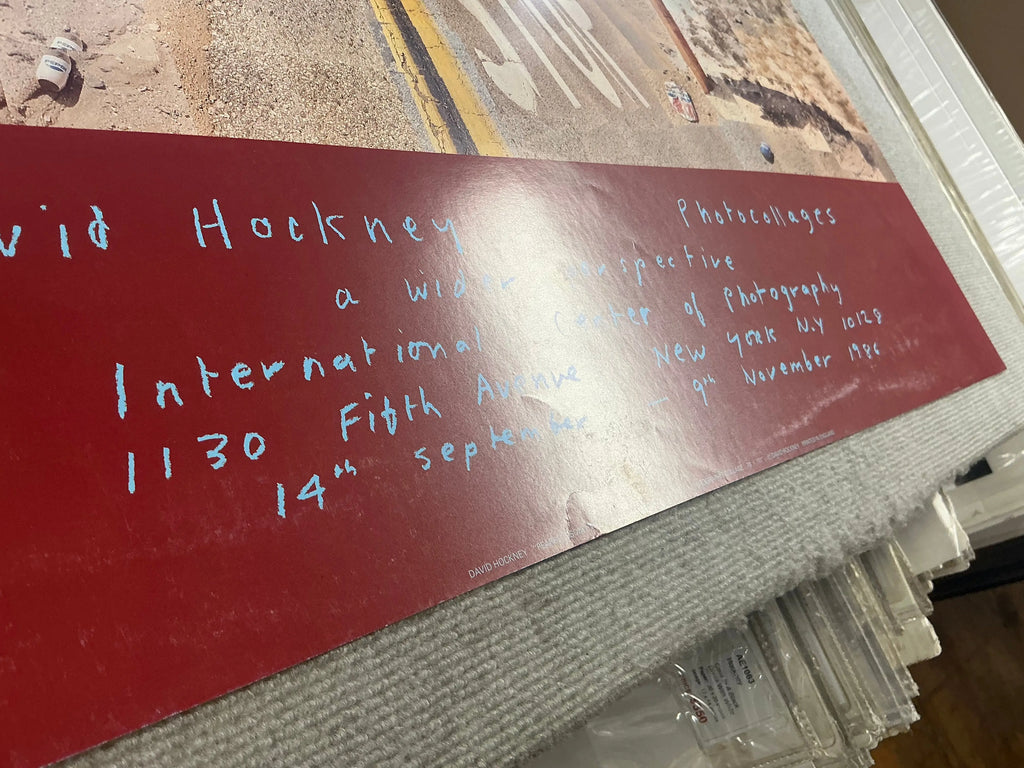 STOP
vid Hockney Photocollages
a wider perspective
International Center of Photography
1130 Fifth Avenue New York N.Y 10128
14th September – 9th November 1986
DAVID HOCKNEY
AET083